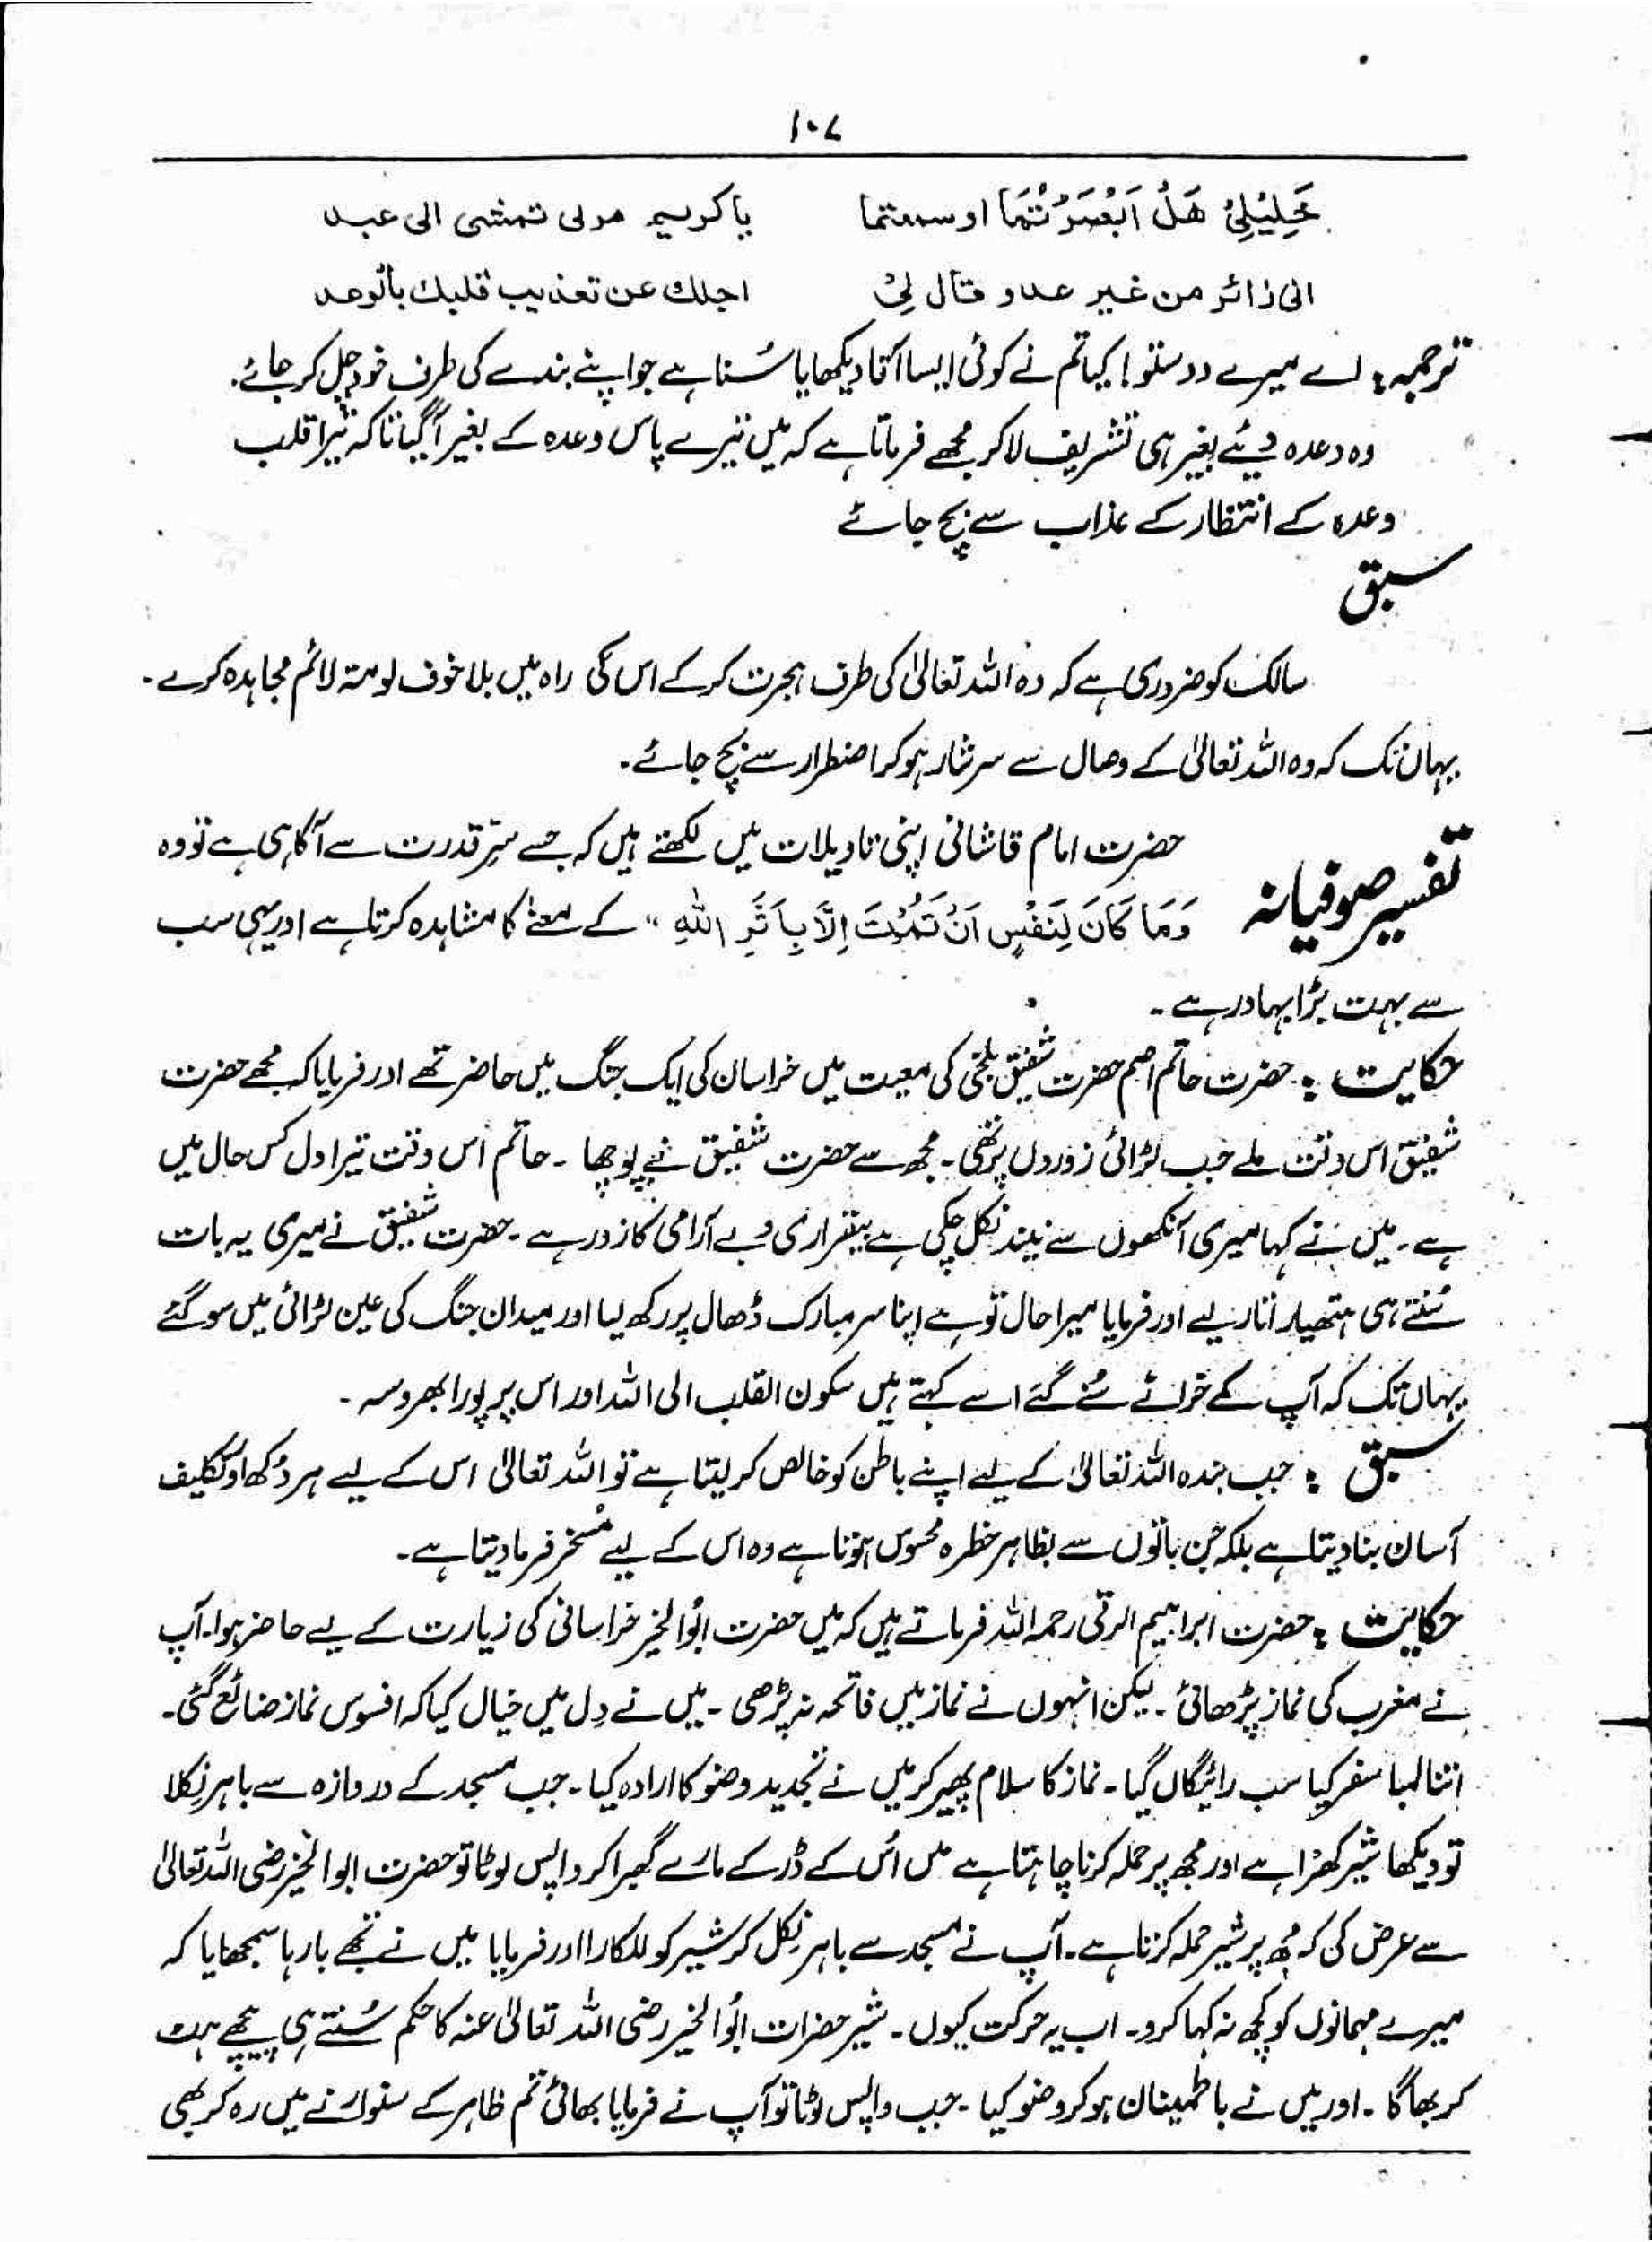 ۱۰۷
خَلِیْلِیْ هَلْ اَبْصَرْتُمَا او سمعتما    یا کریم مولی تمشی الی عبد
اتی زائر من غیر عدو قال لِیْ    اجلك عن تعذیب قلبك بالوعد
ترجمہ: اے میرے دوستو! کیا تم نے کوئی ایسا آقا دیکھا یا سُنا ہے جو اپنے بندے کی طرف خود چل کر جائے۔
وہ وعدہ دیئے بغیر ہی تشریف لا کر مجھے فرماتا ہے کہ میں تیرے پاس وعدہ کے بغیر آگیا تاکہ تیرا قلب
وعدہ کے انتظار کے عذاب سے بچ جائے
سبق
سالک کو ضروری ہے کہ وہ اللہ تعالیٰ کی طرف ہجرت کرکے اس کی راہ میں بلا خوف لومۃ لائم مجاہدہ کرے۔
یہاں تک کہ وہ اللہ تعالیٰ کے وصال سے سرشار ہو کر اضطرار سے بچ جائے۔
تفسیر صوفیانہ حضرت امام قاشانی اپنی تاویلات میں لکھتے ہیں کہ جسے سِرّ قدرت سے آگاہی ہے تو وہ
وَمَا کَانَ لِنَفْسٍ اَنْ تَمُوْتَ اِلَّا بِاَثَرِ اللهِ " کے معنے کا مشاہدہ کرتا ہے اور یہی سب
سے بہت بڑا بہادر ہے۔
حکایت : حضرت حاتم اصم حضرت شفیق بلخی کی معیت میں خراسان کی ایک جنگ میں حاضر تھے اور فرمایا کہ مجھے حضرت
شفیق اس وقت ملے جب لڑائی زوروں پر تھی۔ مجھ سے حضرت شفیق نے پوچھا۔ حاتم اس وقت تیرا دل کس حال میں
ہے۔ میں نے کہا میری آنکھوں سے نیند نکل چکی ہے بیقراری و بے آرامی کا زور ہے۔ حضرت شفیق نے میری یہ بات
سُنتے ہی ہتھیار اتار لیے اور فرمایا میرا حال تو ہے اپنا سر مبارک ڈھال پر رکھ لیا اور میدان جنگ کی عین لڑائی میں سوگئے
یہاں تک کہ آپ کے خراٹے سُنے گئے اسے کہتے ہیں سکون القلب الی اللہ اور اس پر پورا بھروسہ۔
سبق : جب بندہ اللہ تعالیٰ کے لیے اپنے باطن کو خالص کر لیتا ہے تو اللہ تعالیٰ اس کے لیے ہر دُکھ اور تکلیف
آسان بنا دیتا ہے بلکہ جن باتوں سے بظاہر خطرہ محسوس ہوتا ہے وہ اس کے لیے مُسخر فرما دیتا ہے۔
حکایت : حضرت ابراہیم الرقی رحمہ اللہ فرماتے ہیں کہ میں حضرت ابُوالخیر خراسانی کی زیارت کے لیے حاضر ہوا۔ آپ
نے مغرب کی نماز پڑھائی۔ لیکن انہوں نے نماز میں فاتحہ نہ پڑھی۔ میں نے دِل میں خیال کیا کہ افسوس نماز ضائع گئی۔
اتنا لمبا سفر کیا سب رائیگاں گیا۔ نماز کا سلام پھیر کر میں نے تجدید وضو کا ارادہ کیا۔ جب مسجد کے دروازہ سے باہر نِکلا
تو دیکھا شیر کھڑا ہے اور مجھ پر حملہ کرنا چاہتا ہے میں اُس کے ڈر کے مارے گھبرا کر واپس لوٹا تو حضرت ابوالخیر رضی اللہ تعالیٰ
سے عرض کی کہ مجھ پر شیر حملہ کرتا ہے۔ آپ نے مسجد سے باہر نِکل کر شیر کو للکارا اور فرمایا میں نے تجھے بارہا سمجھایا کہ
میرے مہمانوں کو کچھ نہ کہا کرو۔ اب یہ حرکت کیوں۔ شیر حضرات ابُوالخیر رضی اللہ تعالیٰ عنہ کا حکم سُنتے ہی پیچھے ہٹ
کر بھاگا۔ اور میں نے باطمینان ہو کر وضو کیا۔ جب واپس لوٹا تو آپ نے فرمایا بھائی تم ظاہر کے سنوارنے میں رہ کر بھی